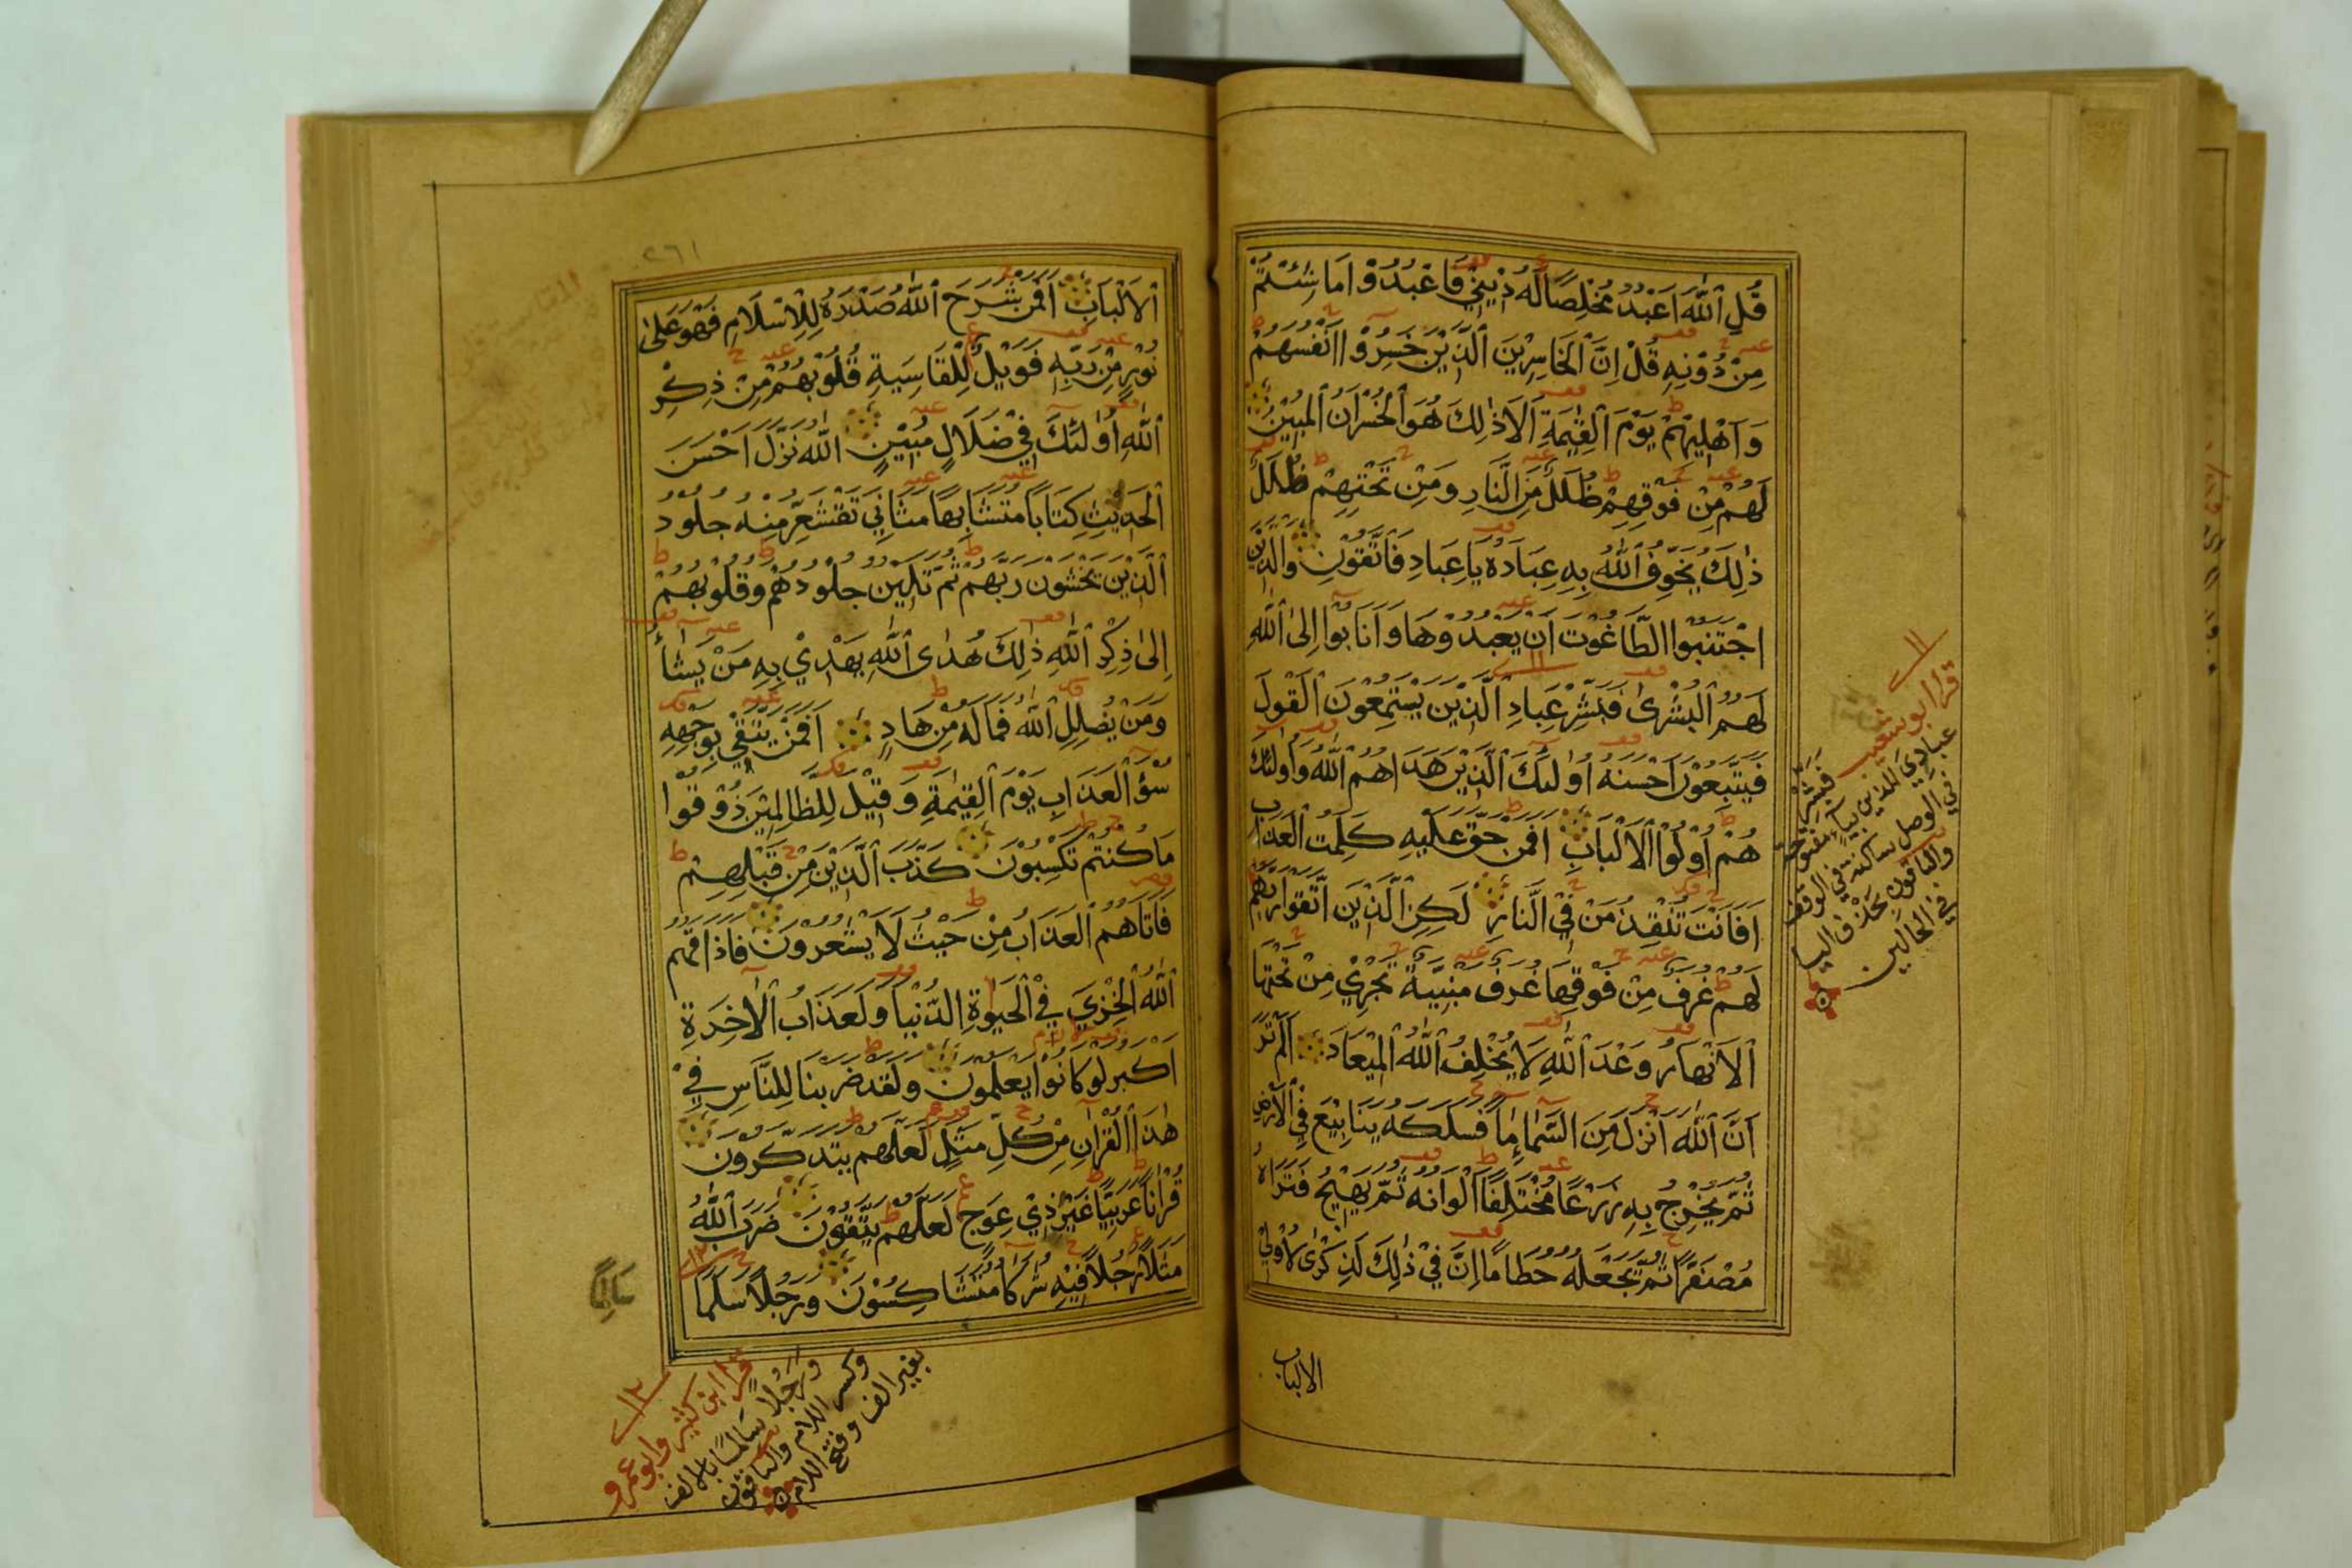 قُلِ ٱللّٰهَ اَعْبُدُ مُخْلِصًا لَهُ دِيْنِيْ فَاعْبُدُوْا مَا شِئْتُمْ
مِنْ دُوْنِهِ قُلْ اِنَّ ٱلْخَاسِرِيْنَ ٱلَّذِيْنَ خَسِرُوْا اَنْفُسَهُمْ
وَاَهْلِيْهِمْ يَوْمَ ٱلْقِيٰمَةِ اَلَا ذٰلِكَ هُوَ ٱلْخُسْرَانُ ٱلْمُبِيْنُ
لَهُمْ مِنْ فَوْقِهِمْ ظُلَلٌ مِنَ ٱلنَّارِ وَمِنْ تَحْتِهِمْ ظُلَلٌ
ذٰلِكَ يُخَوِّفُ ٱللّٰهُ بِهِ عِبَادَهُ يَا عِبَادِ فَاتَّقُوْنِ وَالَّذِيْنَ
اجْتَنَبُوا الطَّاغُوْتَ اَنْ يَعْبُدُوْهَا وَاَنَابُوْا اِلَى ٱللّٰهِ
لَهُمُ ٱلْبُشْرٰى فَبَشِّرْ عِبَادِ ٱلَّذِيْنَ يَسْتَمِعُوْنَ ٱلْقَوْلَ
فَيَتَّبِعُوْنَ اَحْسَنَهُ اُولٰئِكَ ٱلَّذِيْنَ هَدَاهُمُ ٱللّٰهُ وَاُولٰئِكَ
هُمْ اُوْلُوْا ٱلْاَلْبَابِ اَفَمَنْ حَقَّ عَلَيْهِ كَلِمَتُ ٱلْعَذَابِ
اَفَاَنْتَ تُنْقِذُ مَنْ فِيْ ٱلنَّارِ لٰكِنِ ٱلَّذِيْنَ اتَّقَوْا رَبَّهُمْ
لَهُمْ غُرَفٌ مِنْ فَوْقِهَا غُرَفٌ مَبْنِيَّةٌ تَجْرِيْ مِنْ تَحْتِهَا
ٱلْاَنْهَارُ وَعْدَ ٱللّٰهِ لَا يُخْلِفُ ٱللّٰهُ ٱلْمِيْعَادَ اَلَمْ تَرَ
اَنَّ ٱللّٰهَ اَنْزَلَ مِنَ ٱلسَّمَاءِ مَاءً فَسَلَكَهُ يَنَابِيْعَ فِي ٱلْاَرْضِ
ثُمَّ يُخْرِجُ بِهِ زَرْعًا مُخْتَلِفًا اَلْوَانُهُ ثُمَّ يَهِيْجُ فَتَرَاهُ
مُصْفَرًّا ثُمَّ يَجْعَلُهُ حُطَامًا اِنَّ فِيْ ذٰلِكَ لَذِكْرٰى لِاُولِيْ
الالباب
١١
قرا ابو شعيب فبشر
عبادي الذين بياء مفتوحة
في الوصل ساكنة في الوقف
والباقون بحذف اليا
في الحالين
٢٦١
ٱلْاَلْبَابِ اَفَمَنْ شَرَحَ ٱللّٰهُ صَدْرَهُ لِلْاِسْلَامِ فَهُوَ عَلٰى
نُوْرٍ مِنْ رَبِّهِ فَوَيْلٌ لِلْقَاسِيَةِ قُلُوْبُهُمْ مِنْ ذِكْرِ
ٱللّٰهِ اُوْلٰئِكَ فِيْ ضَلَالٍ مُبِيْنٍ ٱللّٰهُ نَزَّلَ اَحْسَنَ
ٱلْحَدِيْثِ كِتَابًا مُتَشَابِهًا مَثَانِيَ تَقْشَعِرُّ مِنْهُ جُلُوْدُ
ٱلَّذِيْنَ يَخْشَوْنَ رَبَّهُمْ ثُمَّ تَلِيْنُ جُلُوْدُهُمْ وَقُلُوْبُهُمْ
اِلٰى ذِكْرِ ٱللّٰهِ ذٰلِكَ هُدٰى ٱللّٰهِ يَهْدِيْ بِهِ مَنْ يَشَاءُ
وَمَنْ يُضْلِلِ ٱللّٰهُ فَمَا لَهُ مِنْ هَادٍ اَفَمَنْ يَتَّقِيْ بِوَجْهِهِ
سُوْءَ ٱلْعَذَابِ يَوْمَ ٱلْقِيٰمَةِ وَقِيْلَ لِلظَّالِمِيْنَ ذُوْقُوْا
مَا كُنْتُمْ تَكْسِبُوْنَ كَذَّبَ ٱلَّذِيْنَ مِنْ قَبْلِهِمْ
فَاَتَاهُمُ ٱلْعَذَابُ مِنْ حَيْثُ لَا يَشْعُرُوْنَ فَاَذَاقَهُمُ
ٱللّٰهُ ٱلْخِزْيَ فِيْ ٱلْحَيٰوةِ الدُّنْيَا وَلَعَذَابُ ٱلْاٰخِرَةِ
اَكْبَرُ لَوْ كَانُوْا يَعْلَمُوْنَ وَلَقَدْ ضَرَبْنَا لِلنَّاسِ فِيْ
هٰذَا ٱلْقُرْاٰنِ مِنْ كُلِّ مَثَلٍ لَعَلَّهُمْ يَتَذَكَّرُوْنَ
قُرْاٰنًا عَرَبِيًّا غَيْرَ ذِيْ عِوَجٍ لَعَلَّهُمْ يَتَّقُوْنَ ضَرَبَ ٱللّٰهُ
مَثَلًا رَجُلًا فِيْهِ شُرَكَاءُ مُتَشَاكِسُوْنَ وَرَجُلًا سَلَمًا
سَالِمًا
١٢
قرا ابن كثير وابو عمرو
ورجلا سالما بالالف
وكسر اللام والباقون
بغير الف وفتح اللام